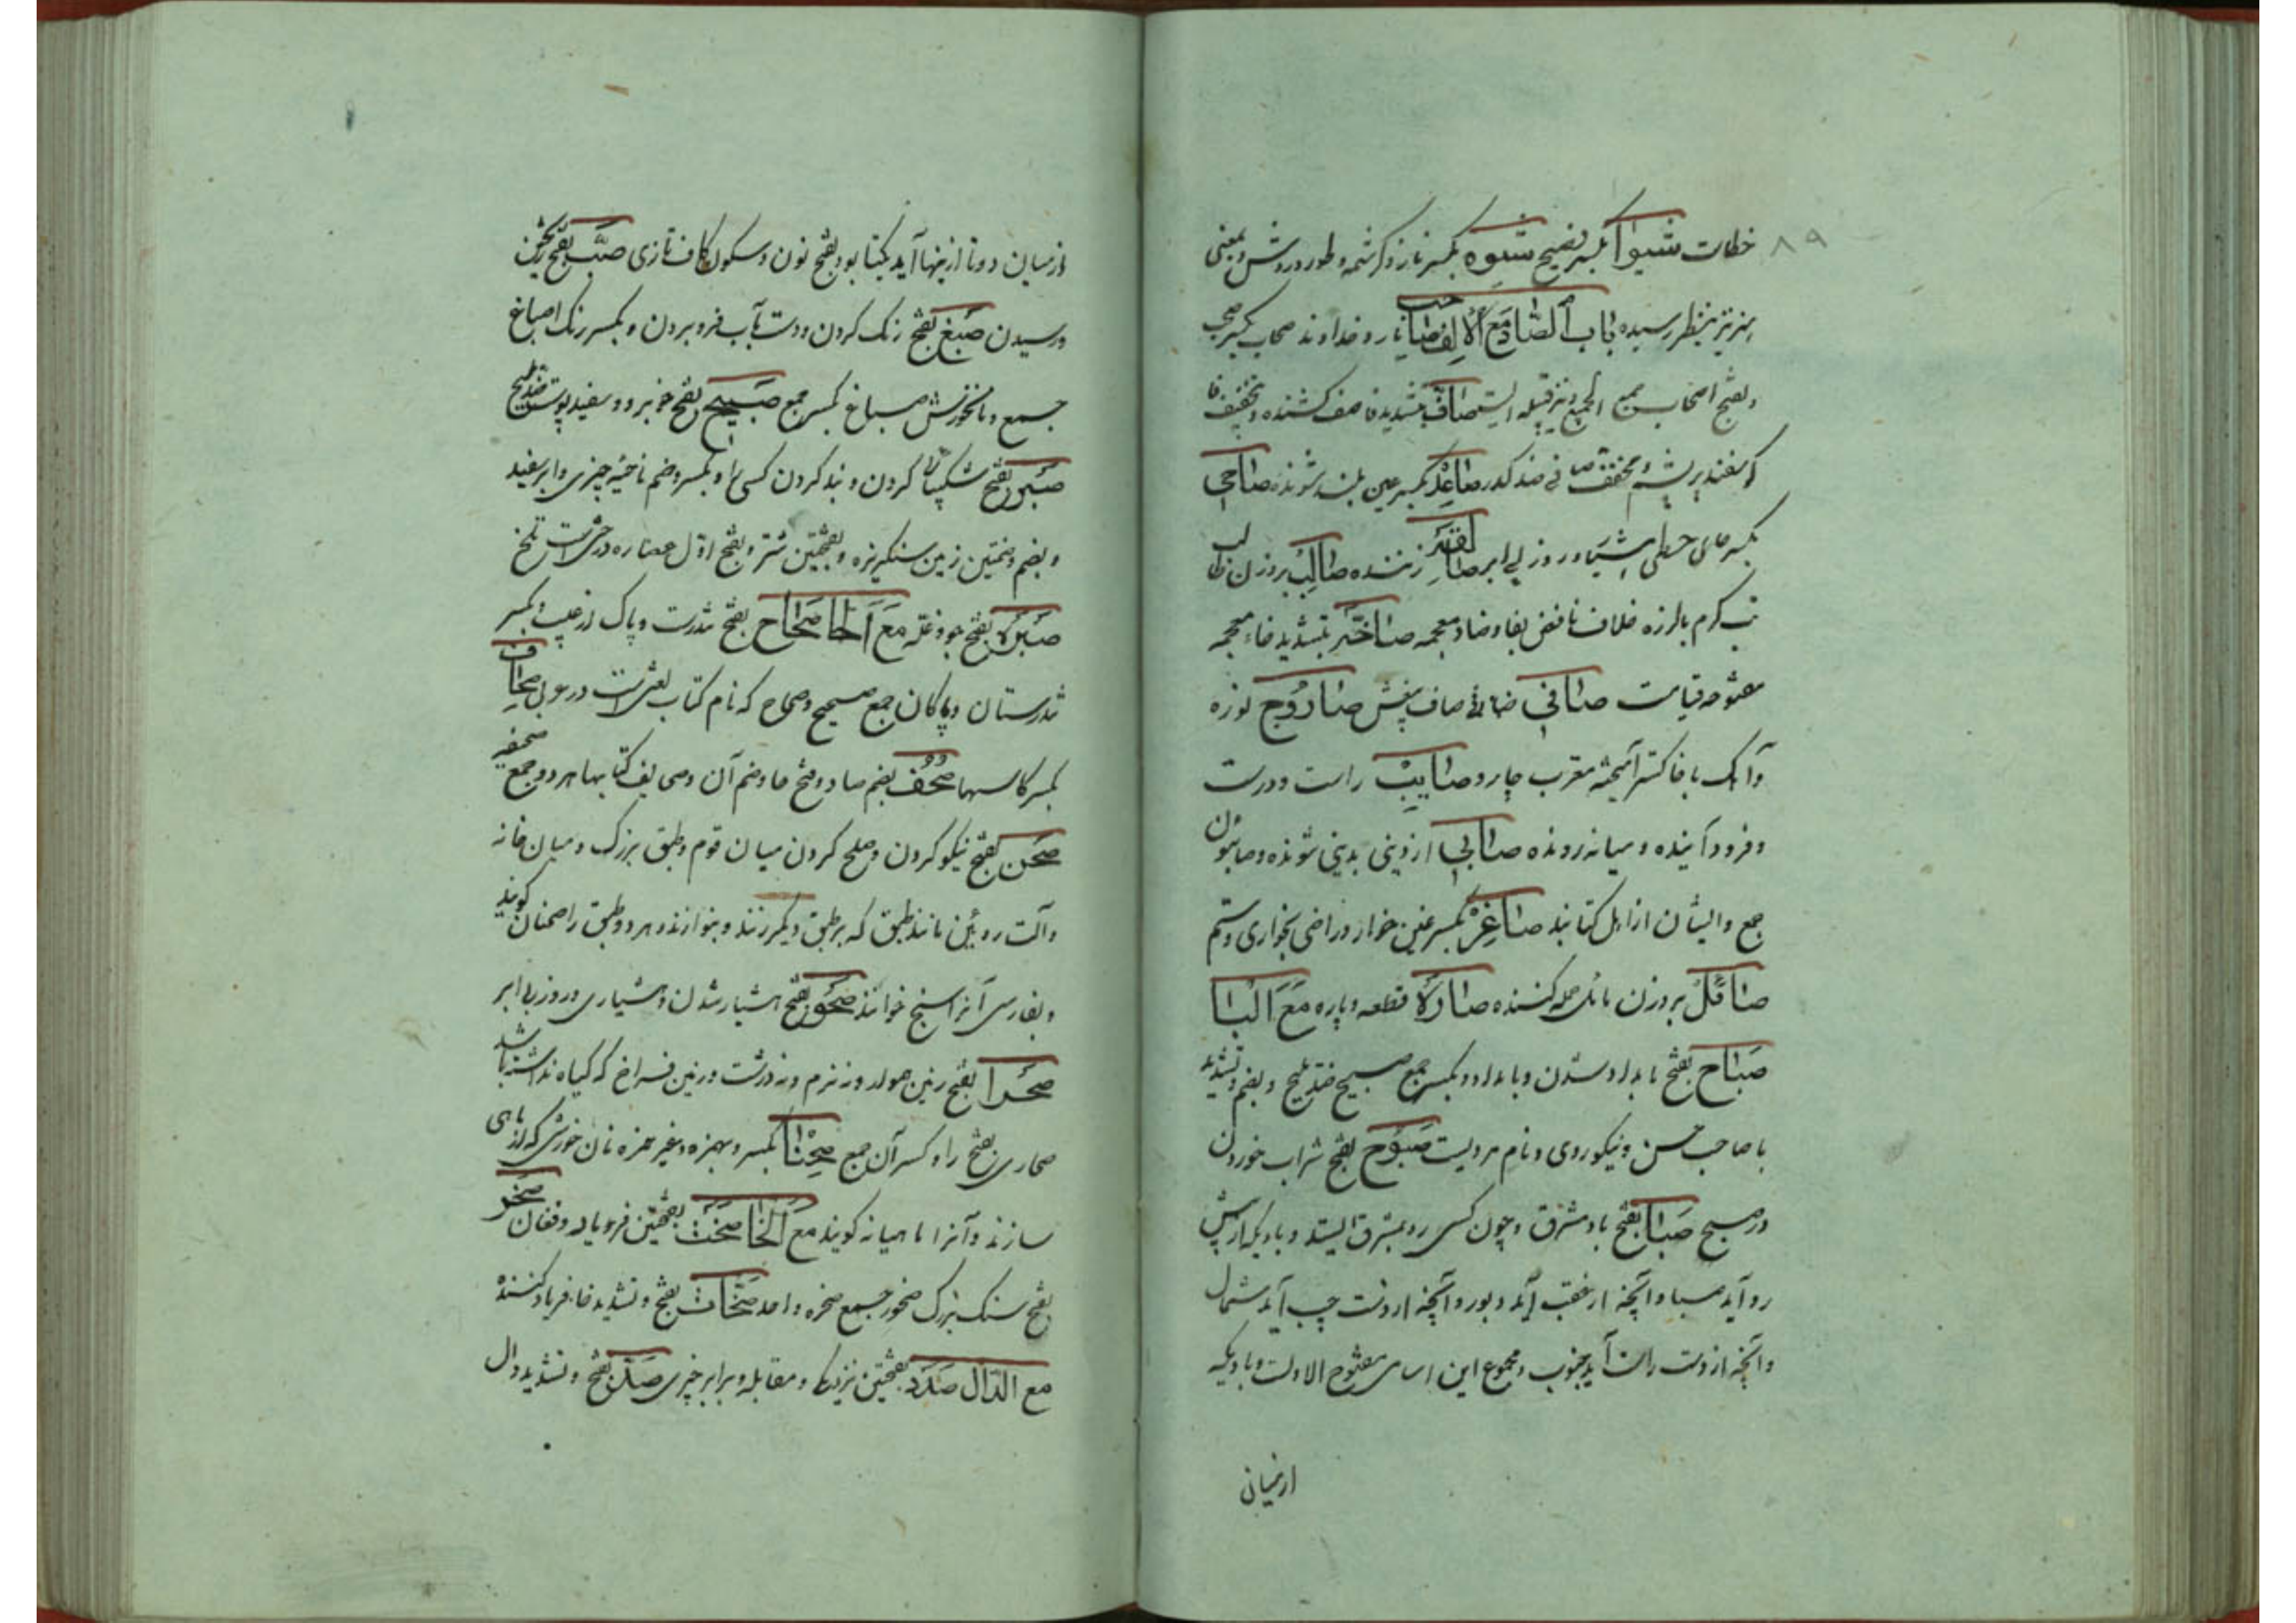 ۸۹
خطات شیوا بکسر فصیح شیوه بکسر ناز و کرشمه و طور و روش و بمعنی
هنر نیز بنظر رسیده باب الصاد مع الالف صاحب یار و خداوند صحاب بکسر صحب
و بفتح اصحاب جمع الجمع و نیز قبیله ایست صاف بتشدید فا صف کشنده و بتخفیف فا
کوسفند پر پشم مخفف صافی ضد کدر صاعد بکسر عین بلند شونده صاحی
بکسر حای حطی هشیار و روز بی ابر صافر زننده صالب بر وزن طالب
تب کرم با لرزه خلاف نافض بفا و ضاد معجمه صاخه بتشدید خاء معجمه
مفتوحه قیامت صافی صاف بیغش صاروج نوره
و آهک با خاکستر آمیخته معرب چارو صایب راست و درست
و فرود آینده و میانه رونده صابی از دینی بدینی شونده و صابئون
جمع و ایشان از اهل کتابند صاغر بکسر غین خوار و راضی بخواری و ستم
بر وزن مائل حمله کننده قطعه و پاره مع البا
صباح بفتح بامداد شدن و بامداد و بکسر جمع صبیح ضد ملیح و بضم و تشدید
با صاحب حسن و نیکوروی و نام مردیست صبوح بفتح شراب خوردن
در صبح صبا بفتح باد مشرق و چون کسی رو بمشرق ایستد و بادیکه از پیش
رو آید صبا و آنچه از عقب آید دبور و آنچه از دست چپ آید شمال
و آنچه از دست راست آید جنوب و مجموع این اسامی مفتوح الاولست و بادیکه
از میانی
از میان دو تا ازینها آید نکبا بود بفتح نون و سکون کاف تازی صب بفتح ریختن
و رسیدن صبغ بفتح رنک کردن و دست بآب فرو بردن و بکسر رنک اصباغ
جمع و نانخورش صباغ بکسر جمع صبیح بفتح خوبرو و سفید پوست ضد ملیح
صبر بفتح شکیبائی کردن و بند کردن کسی را و بکسر و ضم ناحیه چیزی و ابر سفید
و بضم و ضمتین زمین سنکریزه و بفتحتین شتر و بفتح اول عصاره درختیست تلخ
صبره بفتح جو و غله مع الحا صحاح بفتح تندرست و پاک از عیب و بکسر
تندرستان و پاکان جمع صحیح و صحاح که نام کتاب لغتست در عربی صحاف
بکسر کاسهها صحف بضم صاد و فتح حا و ضم آن و صحایف کتابها هر دو جمع صحیفه
صحن بفتح نیکو کردن و صلح کردن میان قوم و طبق بزرک و میان خانه
و آلت روئین مانند طبق که بر طبق دیکر زنند و بنوازند و هر دو طبق را صحنان کویند
و بفارسی آنرا سنج خوانند صحو بفتح هشیار شدن و هشیاری و روز بی ابر
صحرا بفتح زمین هموار و نه نرم و نه درشت و زمین فراخ که کیاه نداشته باشد
صحاری بفتح را و کسر آن جمع صحنا بکسر و بهمزه و بغیر همزه نان خورشی که از ماهی
سازند و آنرا ماهیانه کویند مع الخا صخب بفتحتین فریاد و فغان صخر
بفتح سنک بزرک صخور جمع صخره واحد صخاب بفتح و تشدید خا فریاد کننده
مع الدال صدد بفتحتین نزدیک و مقابله و برابر چیزی صد بفتح و تشدید دال